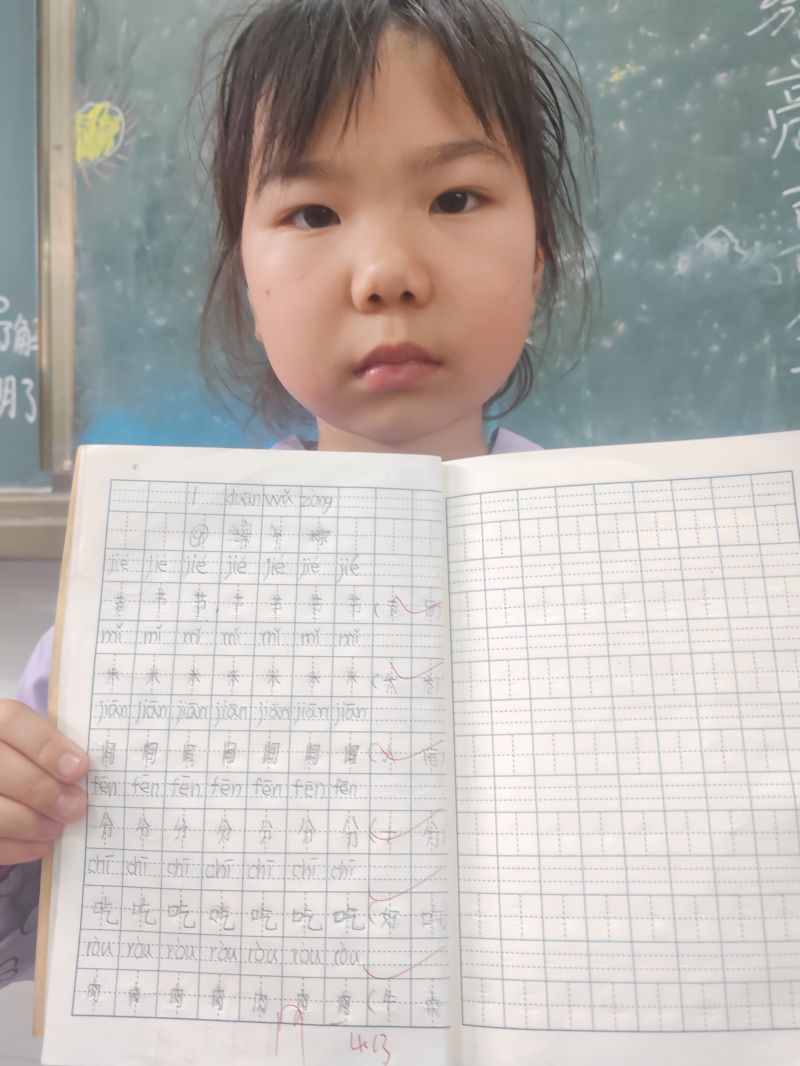 duān wǔ zòng
⑩ 端 午 粽
jié jié jié jié jié jié jié
节 节 节 节 节 节 节 (节
mǐ mǐ mǐ mǐ mǐ mǐ mǐ
米 米 米 米 米 米 米 (
jiān jiān jiān jiān jiān jiān jiān
间 间 间 间 间 间 间 ( 间)
fēn fēn fēn fēn fēn fēn fēn
分 分 分 分 分 分 分 (一 分)
chī chī chī chī chī chī chī
吃 吃 吃 吃 吃 吃 吃 (好 吃
ròu ròu ròu ròu ròu ròu ròu
肉 肉 肉 肉 肉 肉 肉 (牛 肉
4.13
了解
明了
亮